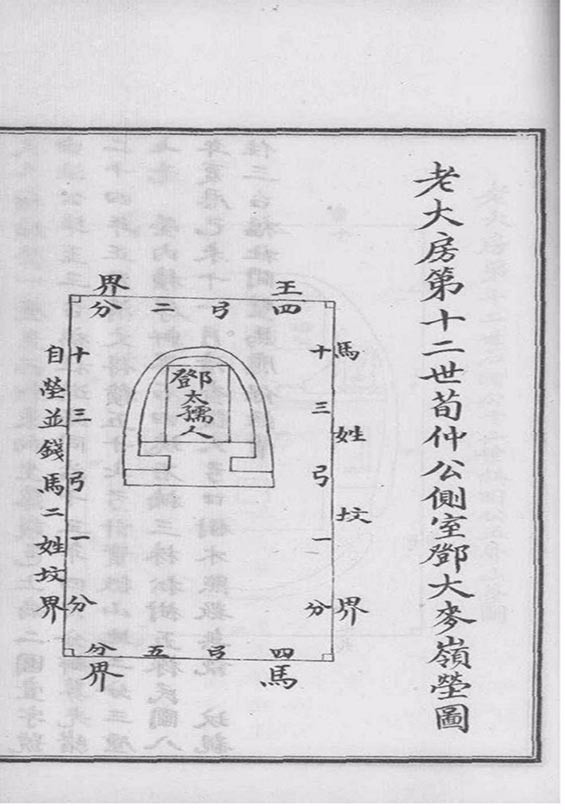 老大房第十二世荀仲公側室鄧大麥嶺塋圖
王界
四弓二分
馬姓坟界
十三弓一分
鄧太孺人
十三弓一分
自塋並錢馬二姓坟界
四弓五分
馬界